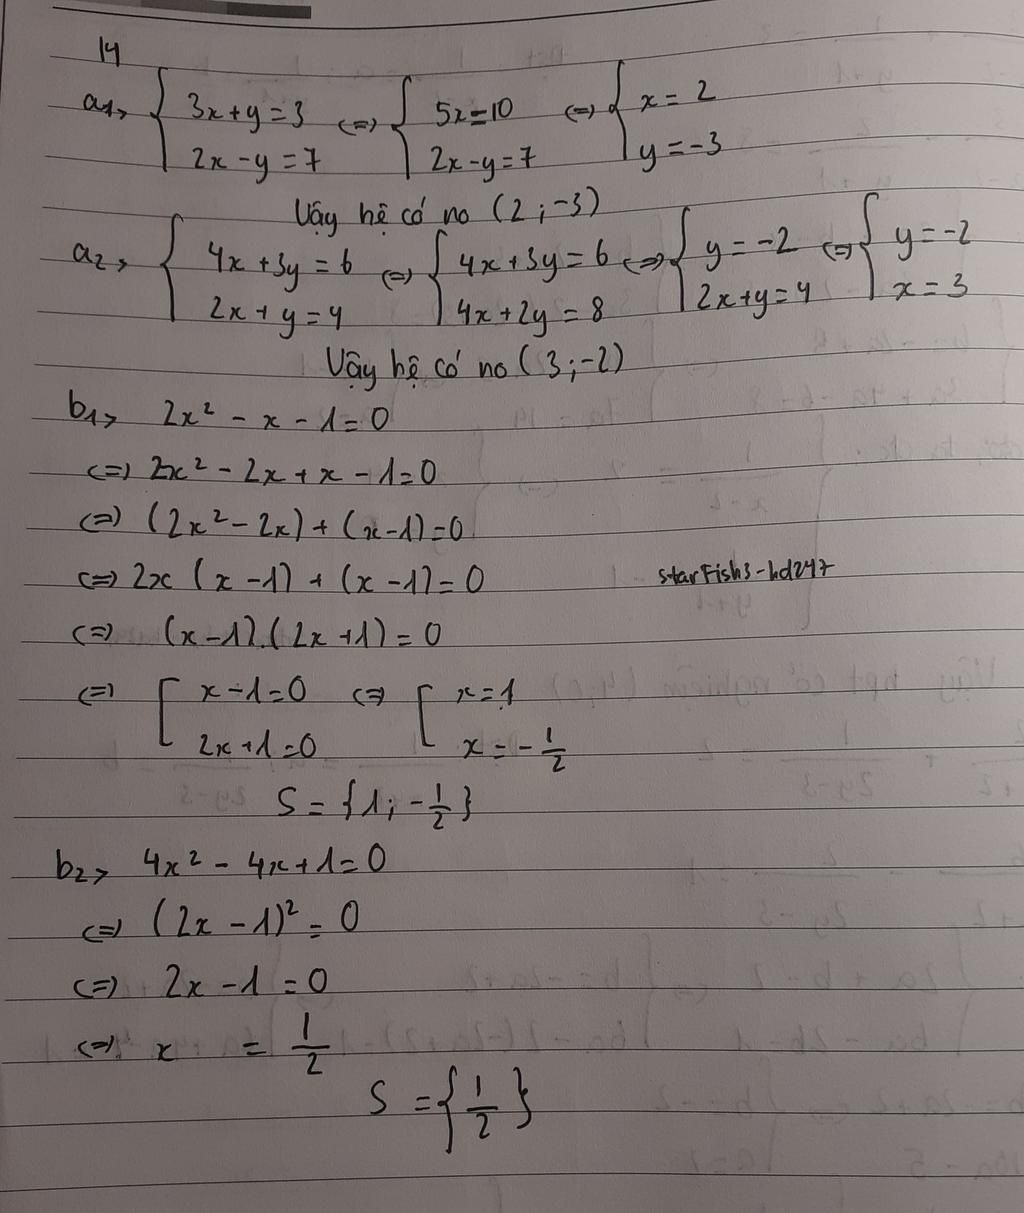 14
a1> { 3x+y=3 <=> { 5x=10 <=> { x=2
2x-y=7 2x-y=7 y=-3
Vậy hệ có no (2;-3)
a2> { 4x+3y=6 <=> { 4x+3y=6 <=> { y=-2 <=> { y=-2
2x+y=4 4x+2y=8 2x+y=4 x=3
Vậy hệ có no (3;-2)
b1> 2x² - x - 1=0
<=> 2x² - 2x + x - 1=0
<=> (2x²-2x)+(x-1)=0
<=> 2x (x-1) + (x-1)=0
starFish3-hd247
<=> (x-1).(2x+1)=0
<=> [ x-1=0 <=> [ x=1
2x+1=0 x=-1/2
S={1;-1/2}
b2> 4x² - 4x+1=0
<=> (2x-1)²=0
<=> 2x-1=0
<=> x = 1/2
S={1/2}